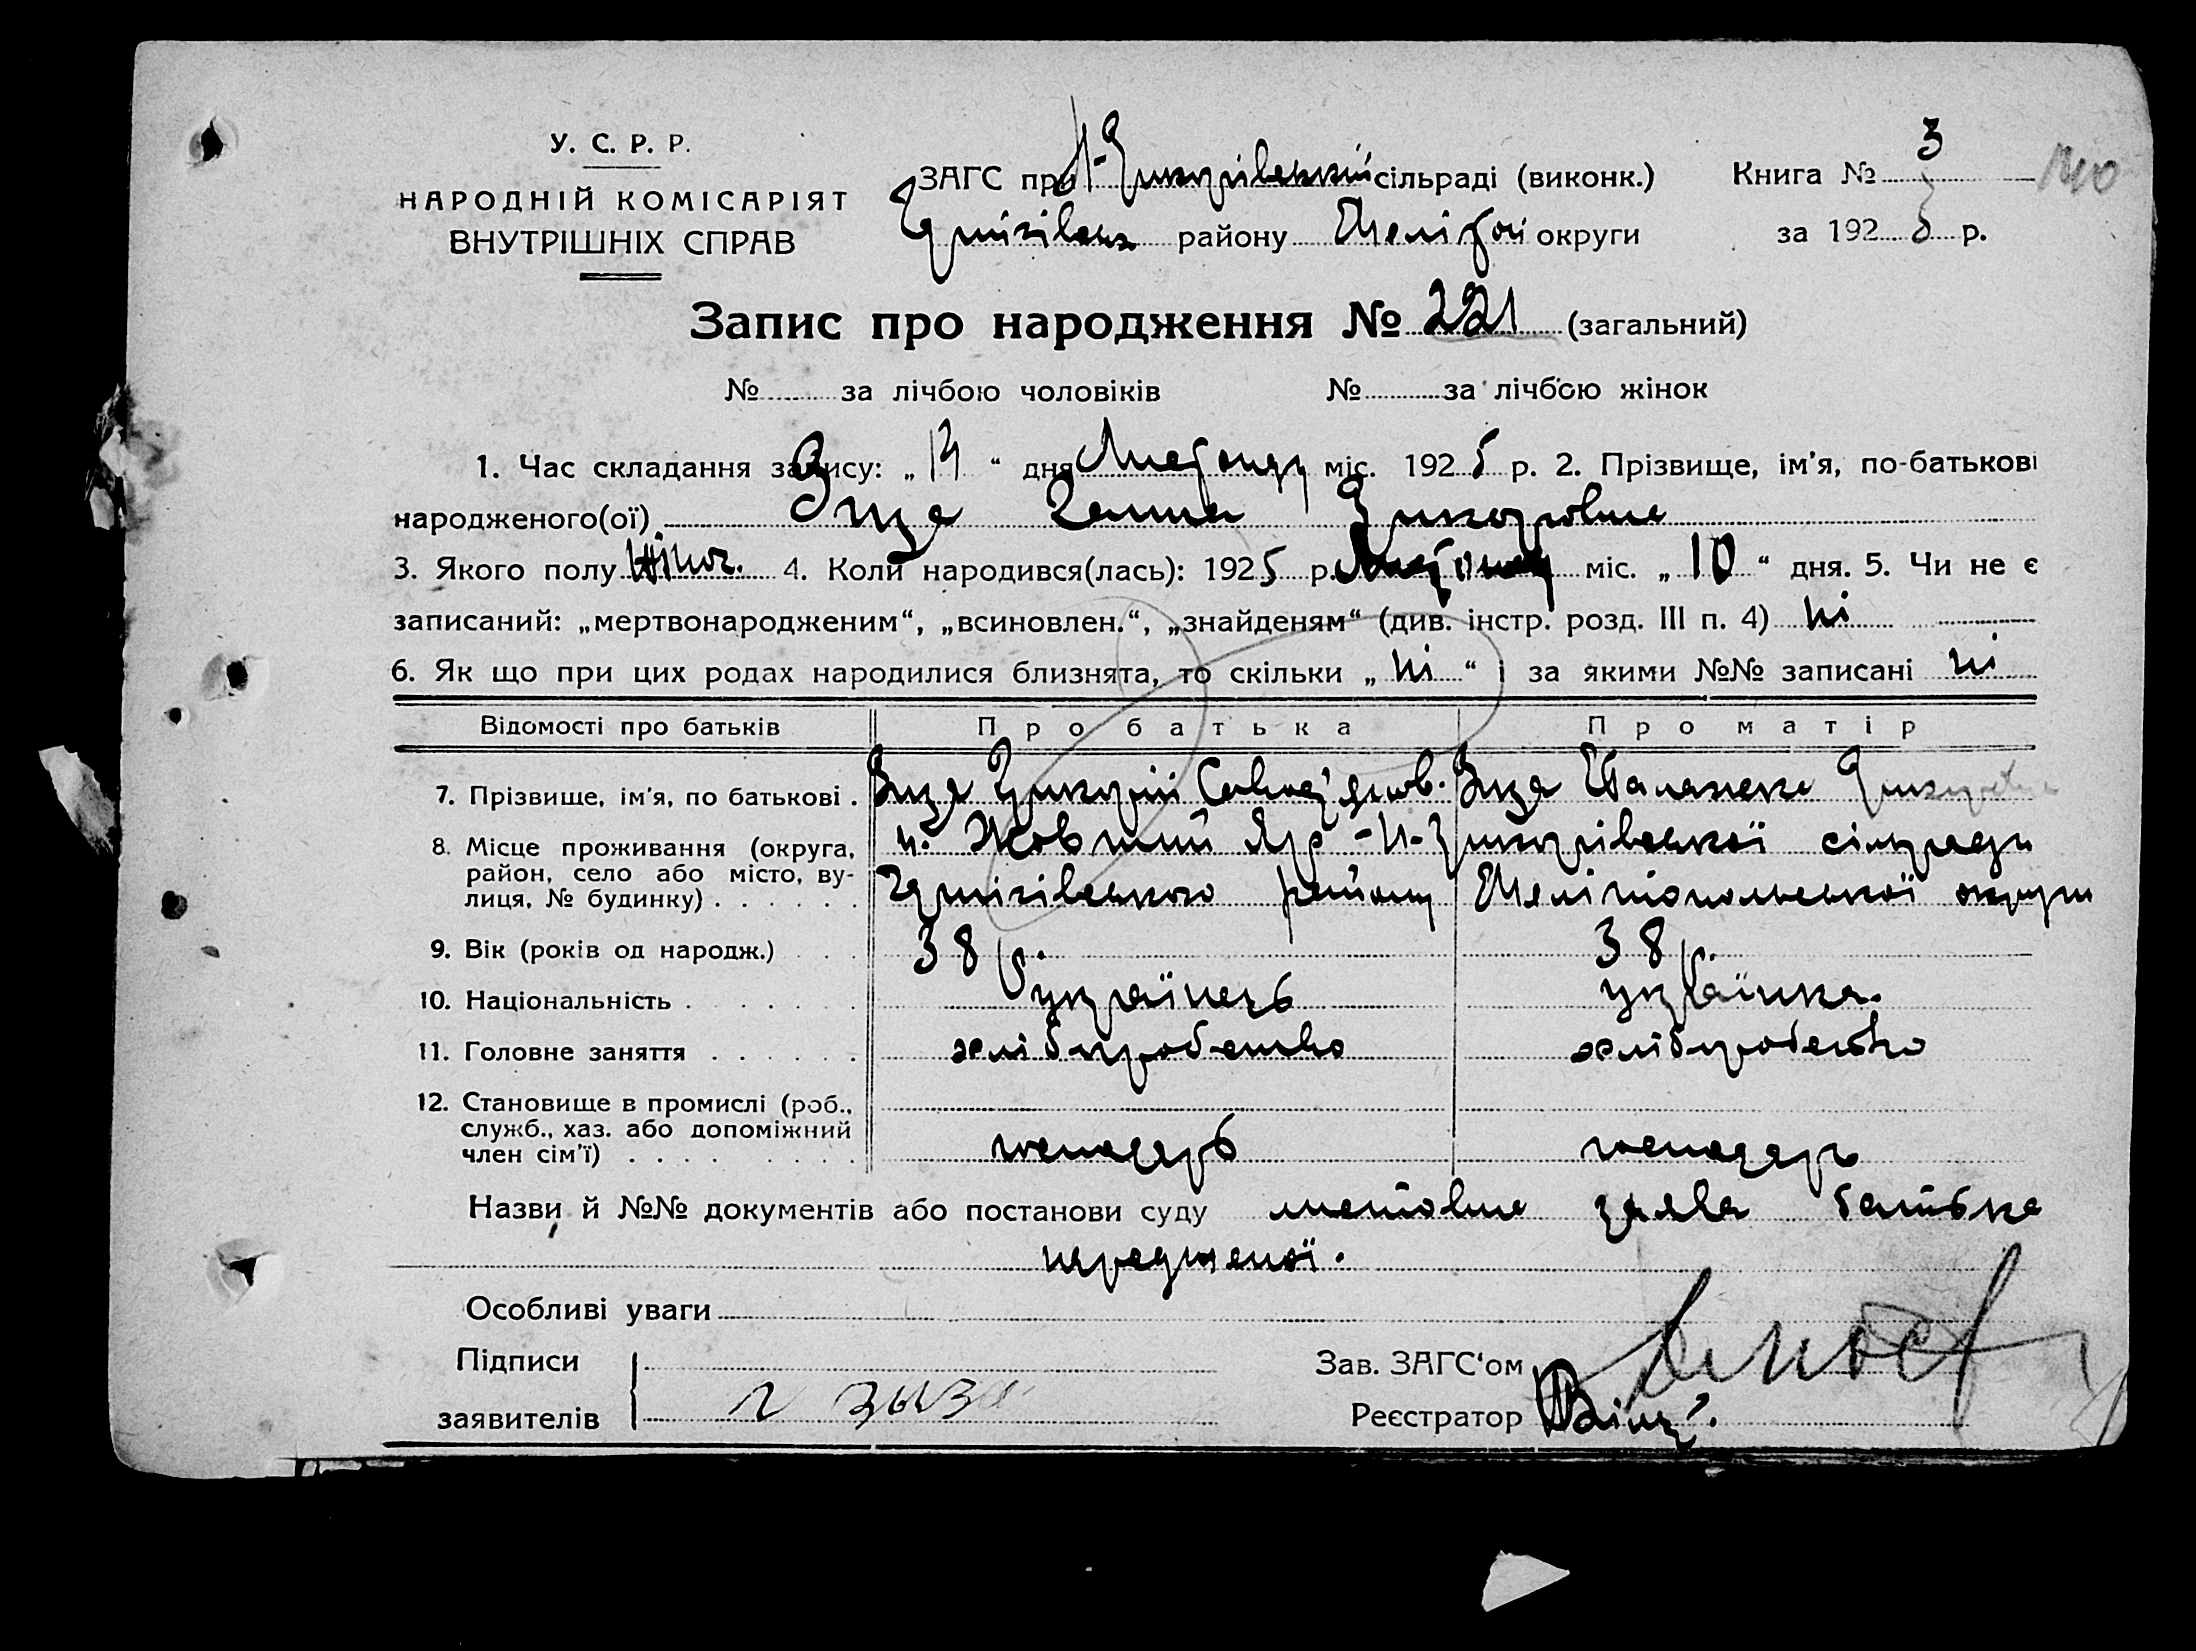 У. С. Р. Р.
НАРОДНІЙ КОМІСАРІЯТ
ВНУТРІШНІХ СПРАВ
ЗАГС при Н-Григорівській сільраді (виконк.)
Чернігівськ району Меліто́п округи
Книга № 3
за 1925 р.
Запис про народження № 221 (загальний)
№ за лічбою чоловіків № за лічбою жінок
1. Час складання запису: „ 13 “ дня Листопаду міс. 1925 р. 2. Прізвище, ім'я, по-батькові
народженого(ої) Зиза Ганна Григоровна
3. Якого полу Жіноч. 4. Коли народився(лась): 1925 р. Листопад міс. „ 10 “ дня. 5. Чи не є
записаний: „мертвонародженим“, „всиновлен.“, „знайденям“ (див. інстр. розд. III п. 4) ні
6. Як що при цих родах народилися близнята, то скільки „ ні “ і за якими №№ записані ні
Відомості про батьків Про батька Про матір
7. Прізвище, ім'я, по батькові . Зиза Григорій Зиза Григоровна
8. Місце проживання (округа, район, село або місто, вулиця, № будинку) . . . . . . Яр Н-Григорівської сільради
Чернігівського району Мелітопольської округи
9. Вік (років од народж.) . . . 38 р. 38 р.
10. Національність . . . . . . . українець українка.
11. Головне заняття . . . . . . хліборобство хліборобство
12. Становище в промислі (роб., служб., хаз. або допоміжний член сім'ї) . . . . . . . . . господарь господарь
Назви й №№ документів або постанови суду словесна заява батька
нарожденої.
Особливі уваги
Підписи
заявителів г зыза
Зав. ЗАГС'ом
Реєстратор